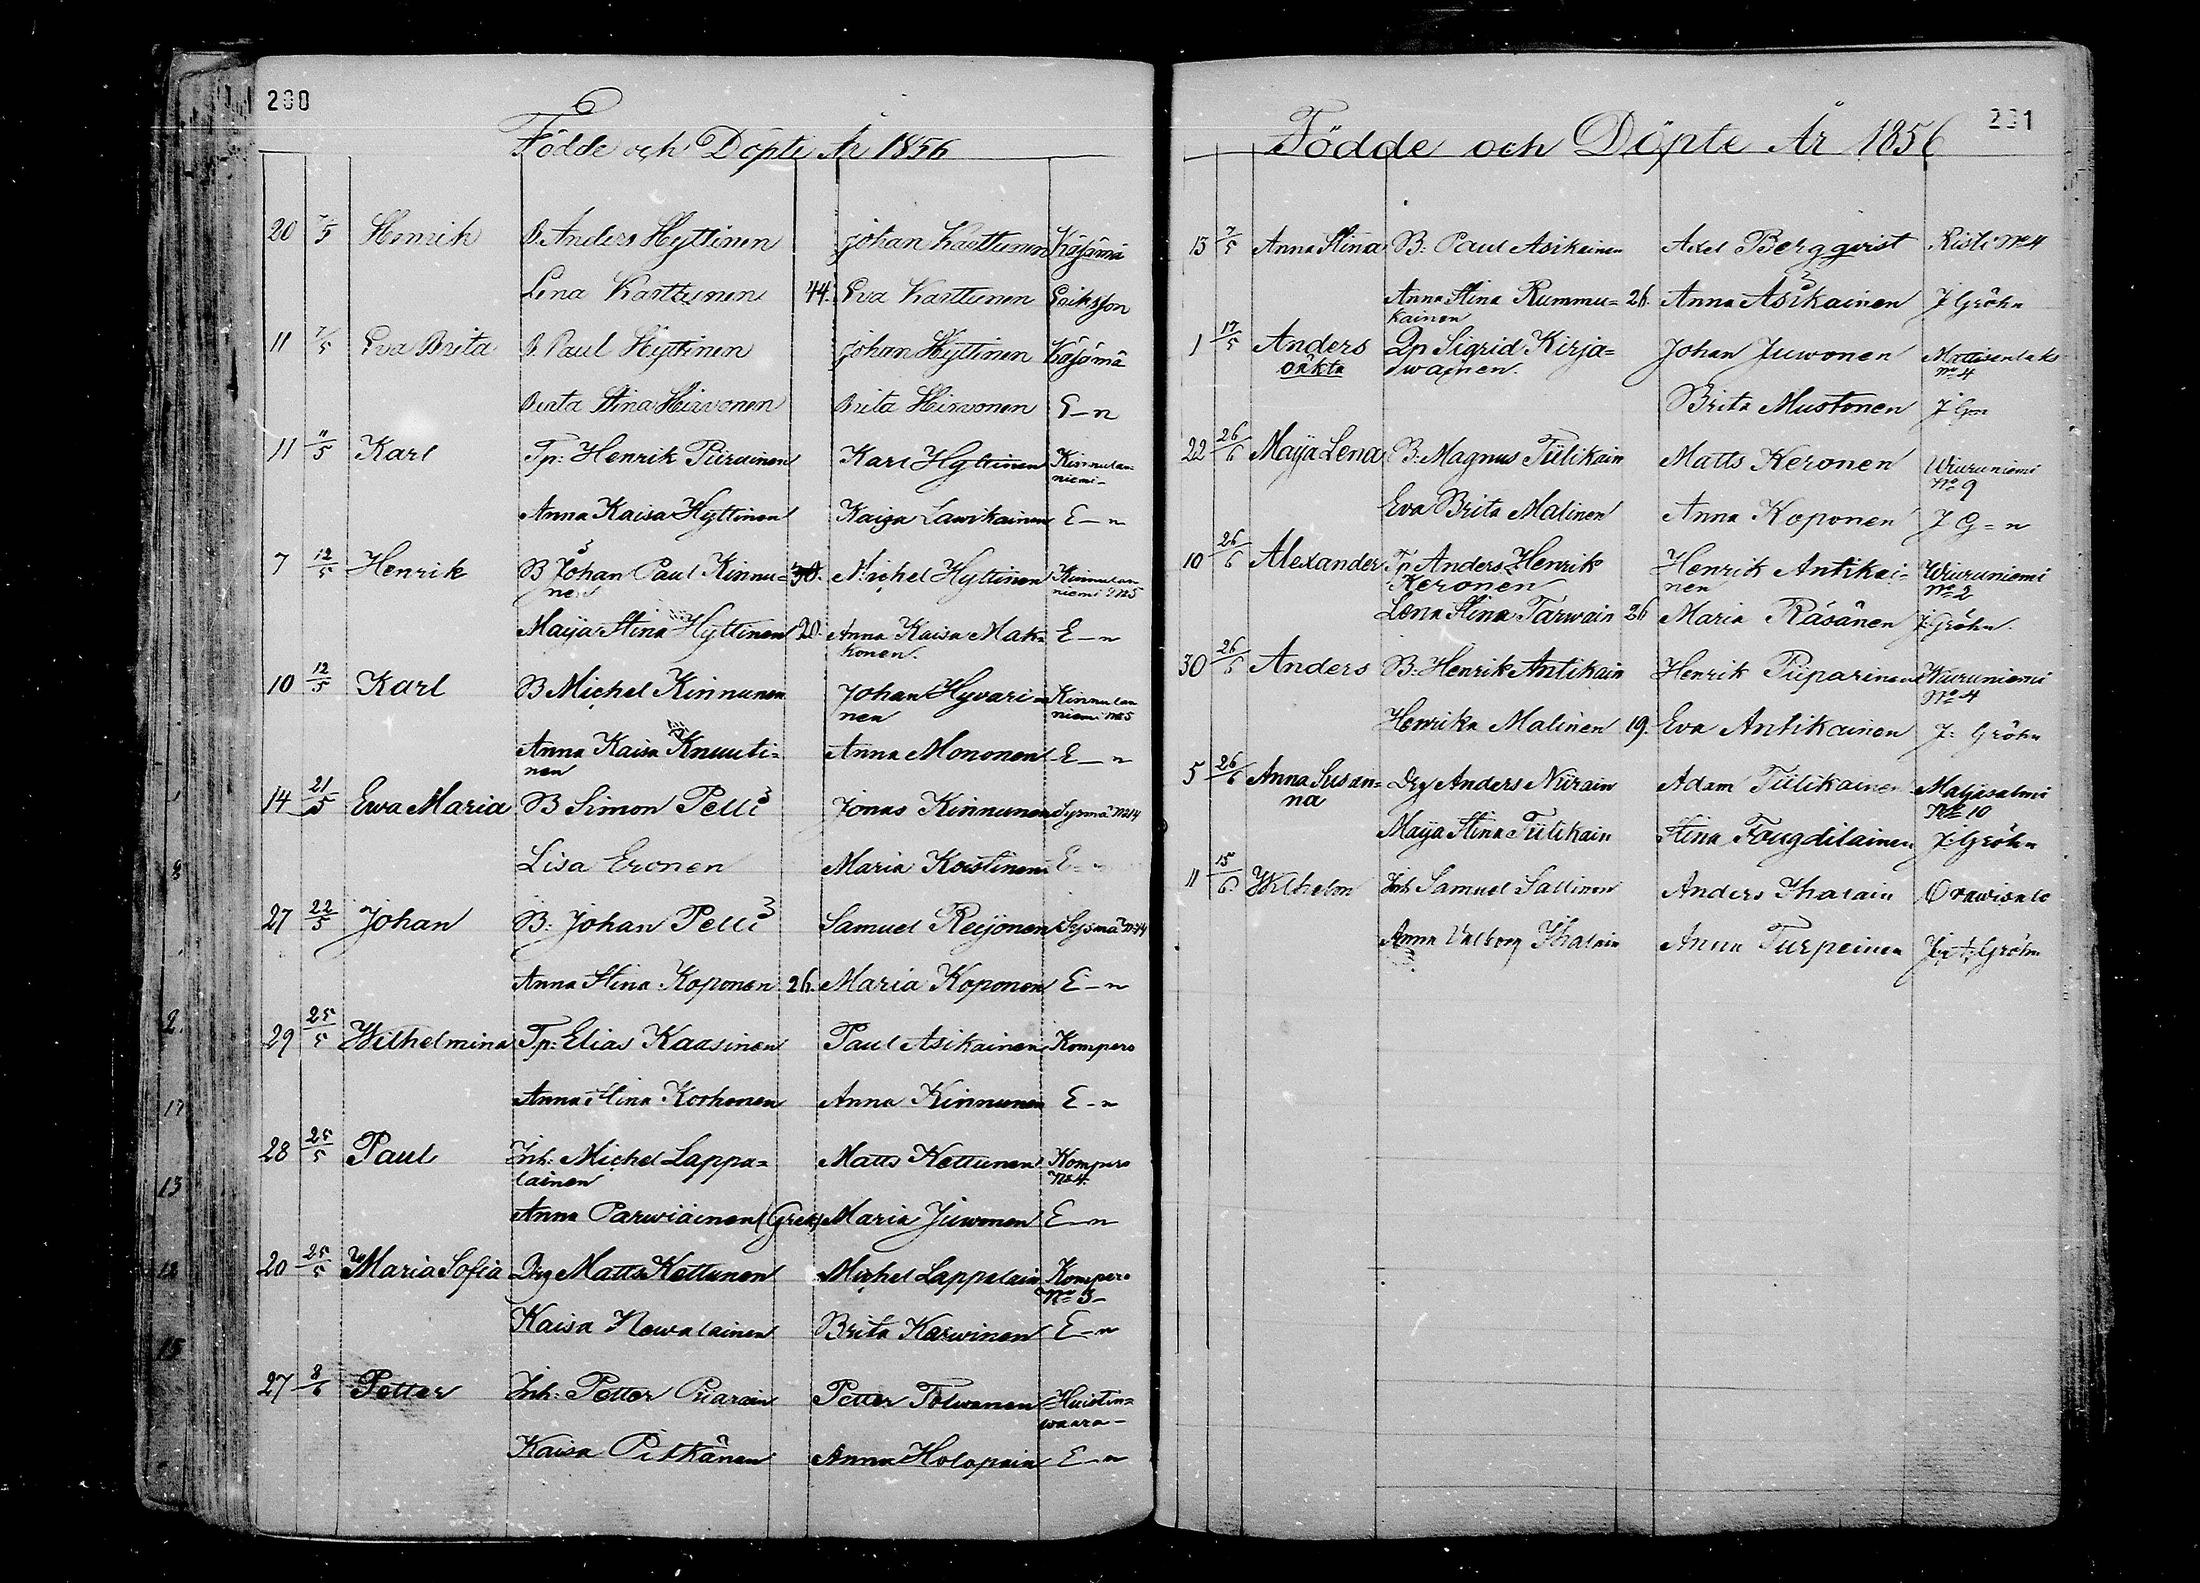 230
Födde och Döpte År 1856
20 7/5 Henrik B. Anders Hyttinen Johan Karttunen Käsämä
Lena Karttunen 44. Eva Karttunen Eriksson
11 7/5 Eva Brita B. Paul Hyttinen Johan Hyttinen Käsämä
Brita Stina Hirvonen Brita Hirvonen E–n
11 11/5 Karl Tp: Henrik Piirainen Karl Hyttinen Kinnulan-
niemi-
Anna Kaisa Hyttinen Kaisa Lawikainen E–n
7 12/5 Henrik B Johan Paul Kinnu= 30. Michel Hyttinen Kinnulan
nen niemi No5
Maija Stina Hyttinen 20. Anna Kaisa Mak= E–n
konen.
10 12/5 Karl B Michel Kinnunen Johan Hyväri= Kinnulan
nen niemi No5
Anna Kaisa Knuuti= Anna Mononen E–n
nen
14 21/5 Ewa Maria B Simon Pelli Jonas Kinnunen Sysmä No14
Lisa Eronen Maria Koistinen E–
27 22/5 Johan B: Johan Pelli Samuel Reijonen Sysmä No14
Anna Stina Koponen 26. Maria Koponen E–n
29 25/5 Wilhelmina Tp: Elias Kaasinen Paul Asikainen Kompero
Anna Stina Korhonen Anna Kinnunen E–n
28 25/5 Paul Inh: Michel Lappa= Matts Kettunen Kompero
lainen No4.
Anna Parwiainen (Grek) Maria Juwonen E–n
20 25/5 Maria Sofia Drg Matts Kettunen Michel Lappalain Kompero
No 3–
Kaisa Newalainen Brita Karwinen E–n
27 8/6 Petter Inh: Petter Piarain Petter Tolwanen Huistin=
waara–
Kaisa Pitkänen Anna Holopain E–n
231
Födde och Döpte År 1856
13 7/5 Anna Stina B: Paul Asikainen Axel Bergqvist Risti No4
Anna Stina Rummu= 26. Anna Asikainen J Gröhn
kainen
1 17/5 Anders Qp Sigrid Kirja= Johan Juwonen Mattisenlaks
oäkta wainen. no 4
Brita Mustonen J Gn
22 26/6 Maija Lena B: Magnus Tiilikain Matts Keronen Wiuruniemi
No 9
Eva Brita Malinen Anna Koponen J G=n
10 26/6 Alexander Tp Anders Henrik Henrik Antikai- Wiuruniemi
Keronen nen No 2
Lena Stina Tarwain 26 Maria Räsänen J: Gröhn.
30 26/5 Anders B: Henrik Antikain Henrik Piiparinen Wiuruniemi
No 4
Henrika Malinen 19. Eva Antikainen J: Gröhn
5 26/6 Anna Susan= Drg Anders Niirain Adam Tiilikainen Matjasalmi
na No 10
Maija Stina Tiilikain Stina Fougdilainen J: Gröhn
11 15/6 Wilhelm Inh Samuel Sallinen Anders Ihalain Orawisalo
Anna Valborg Ihalain Anna Turpeinen Gröhn